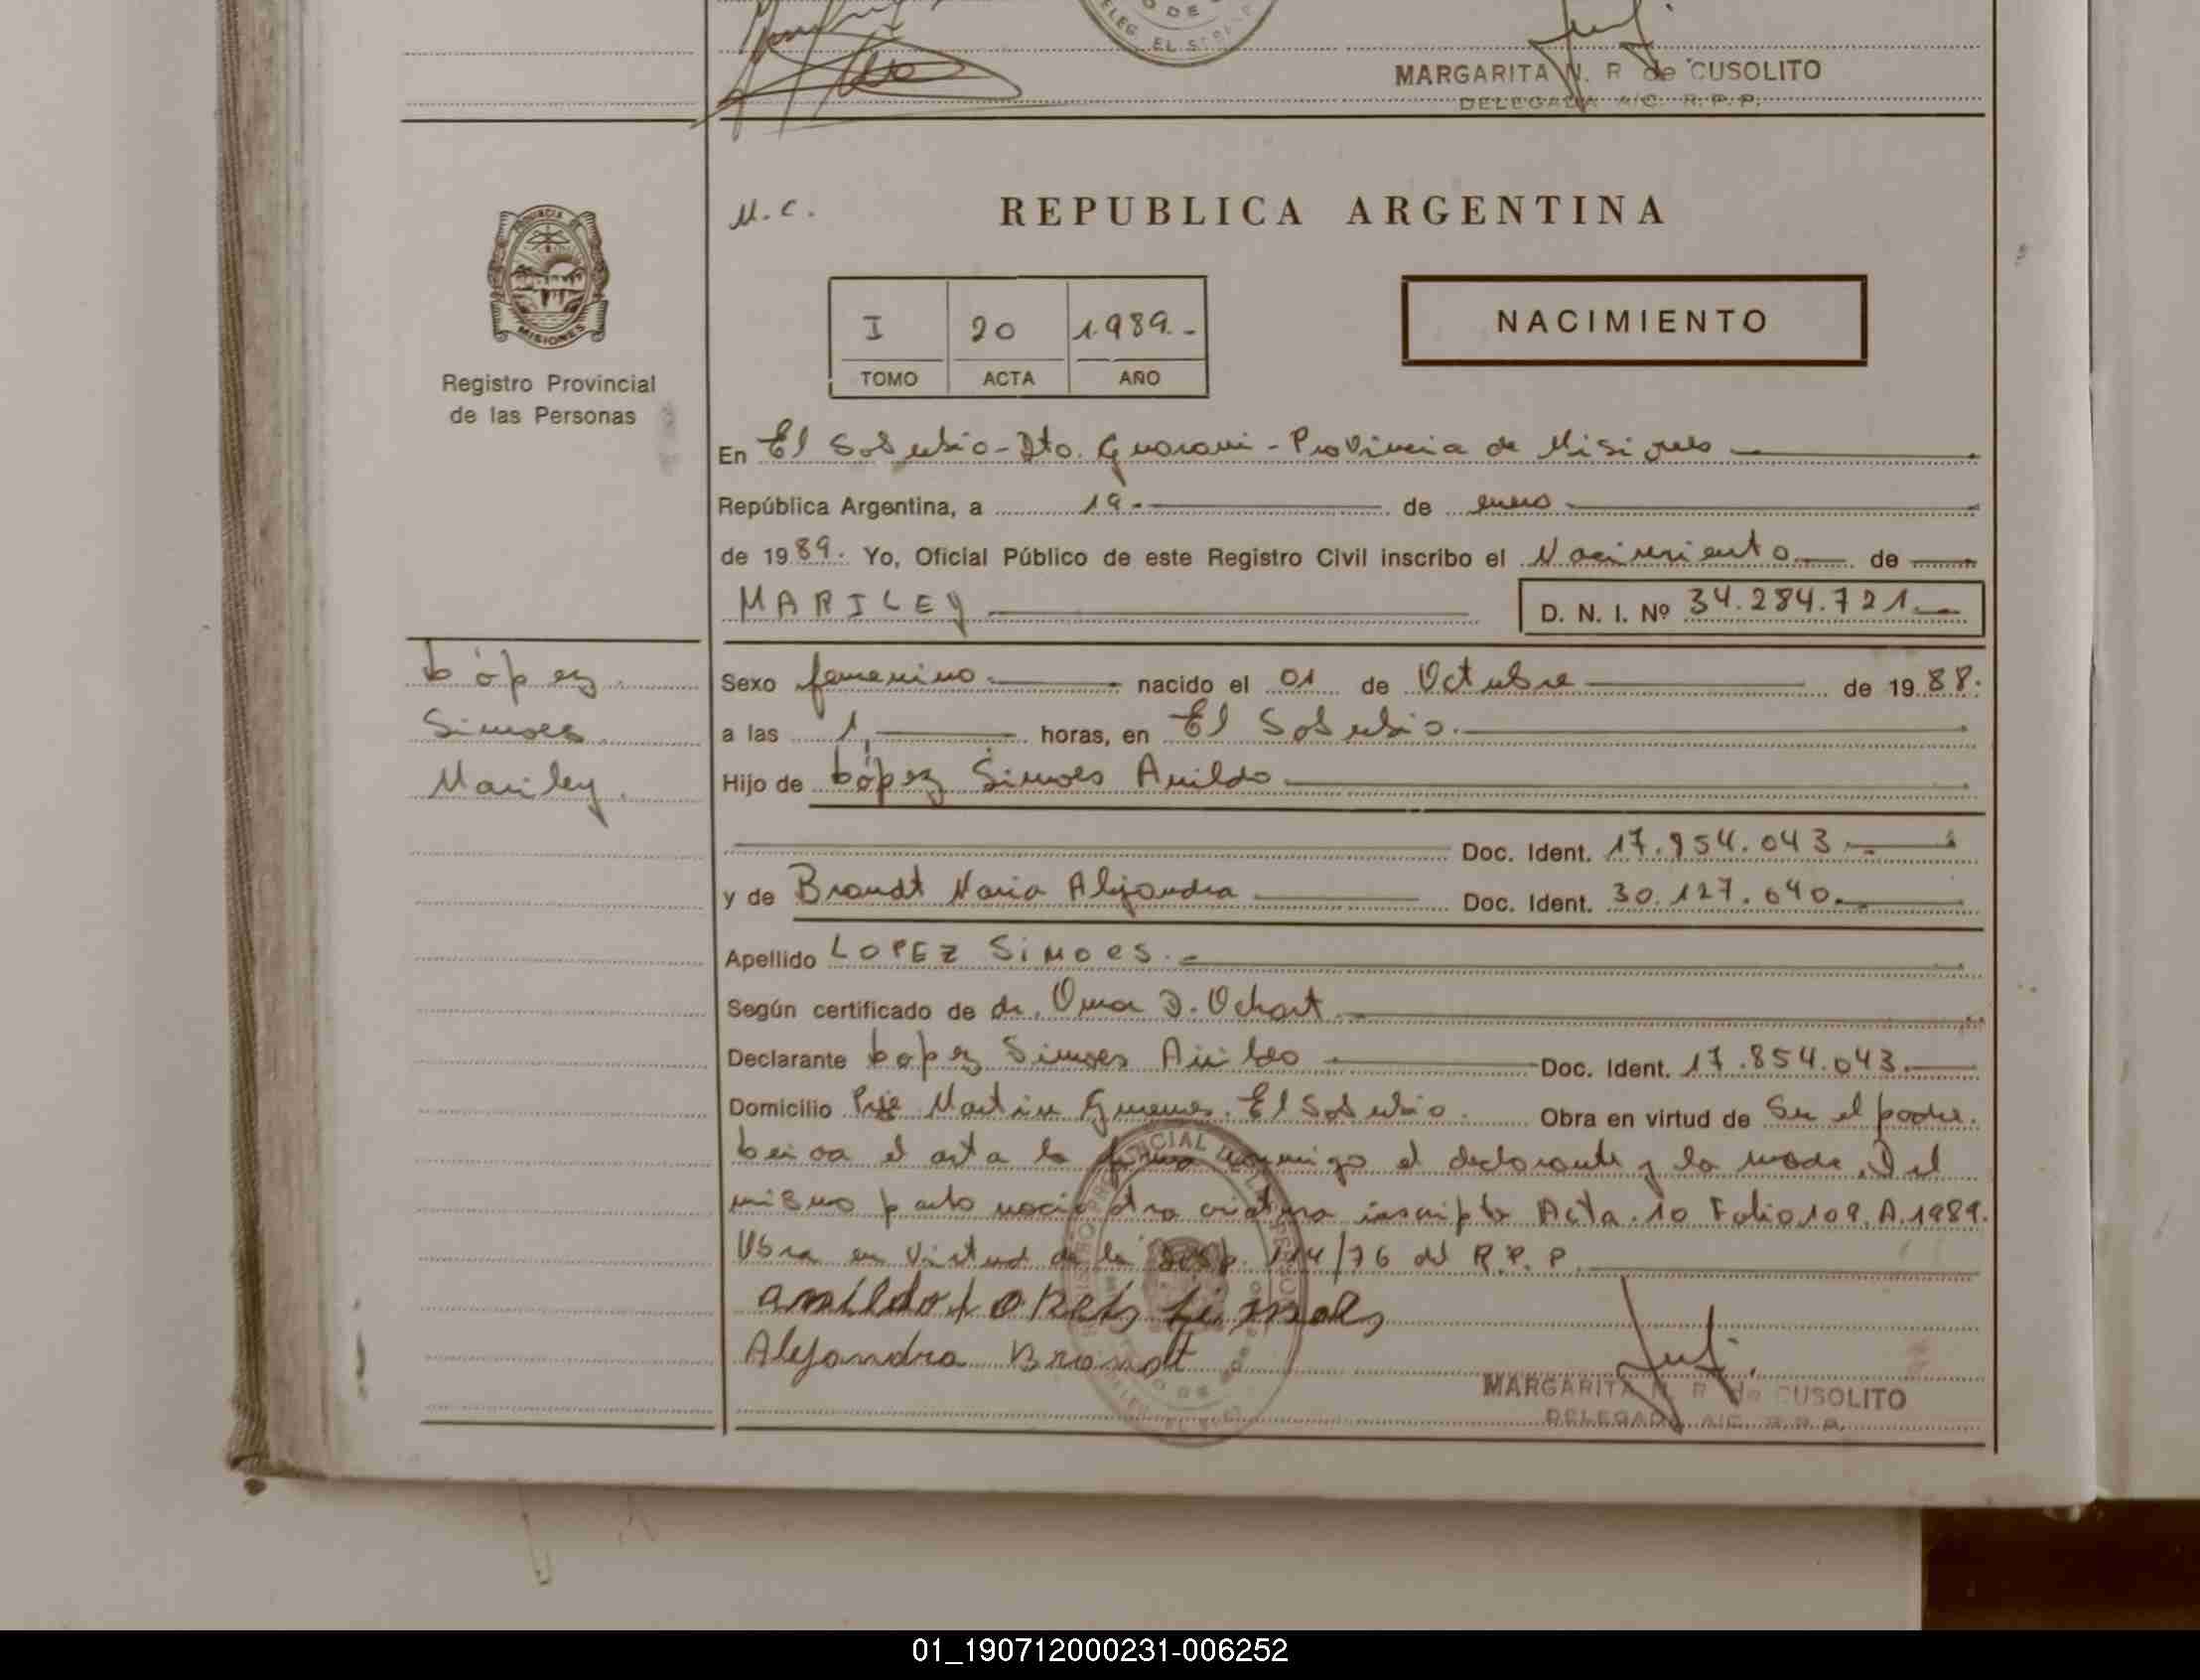 ELEG. EL S
MARGARITA N. R de CUSOLITO
DELEGADA A/C. R.P.P.
PROVINCIA DE
MISIONES
Registro Provincial
de las Personas
M.C.
REPUBLICA ARGENTINA
I 20 1989.-
TOMO ACTA AÑO
NACIMIENTO
En El Soberbio-Dto. Guarani-Provincia de Misiones
República Argentina, a 19- de enero
de 1989. Yo, Oficial Público de este Registro Civil inscribo el Nacimiento de
MARILEY D. N. I. Nº 34.284.721
López
Simoes
Mariley.
Sexo femenino nacido el 01 de Octubre de 1988.
a las 1, horas, en El Soberbio.
Hijo de López Simoes Anildo
Doc. Ident. 17.954.043
y de Brandt Maria Alejandra Doc. Ident. 30.127.040
Apellido LOPEZ SiMOES.-
Según certificado de dr. Omar D. Ochart
Declarante Lopez Simoes Anildo Doc. Ident. 17.854.043.
Domicilio Pje Martin Guemes. El Soberbio. Obra en virtud de Ser el padre.
Leida el acta la firma conmigo el declarante y la madre. Del
mismo parto nació otra criatura inscripta Acta.10 Folio 109.A.1989.
Obra en virtud de la Disp. 114/76 del R.P.P.
anildo Lopes Simoes
Alejandra Brandt
MARGARITA N. R de CUSOLITO
DELEGADA A/C. R.P.P.
01_190712000231-006252